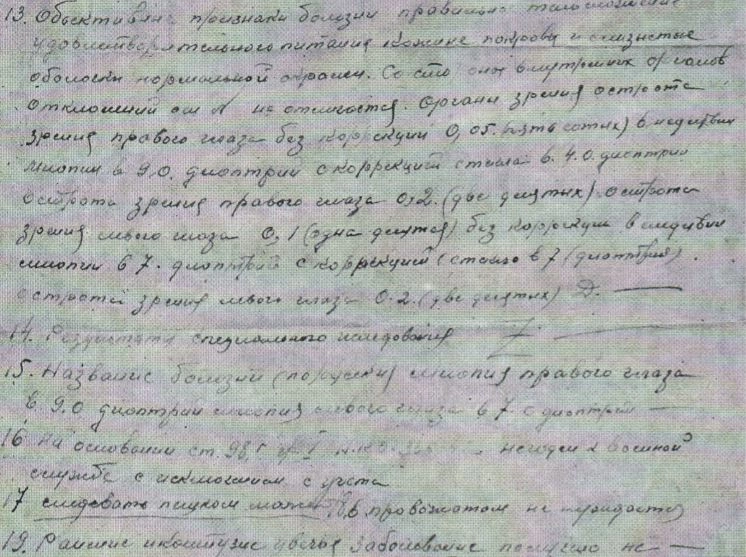 13. Объективные признаки болезни правильно телосложение
удовлетворительного питания кожные покровы и слизистые
оболочки нормальной окраски. Со стороны внутренних органов
отклонений от N не отмечается. Органы зрения острота
зрения правого глаза без коррекции 0,05. (пять сотых) в следствии
миопии в 9.0. диоптрий с коррекцией стекла в. 4.0. диоптрий
острота зрения правого глаза 0,2. (две десятых) острота
зрения левого глаза 0,1 (одна десятая) без коррекции в следствии
миопии в 7. диоптрий с коррекцией (стекло в 7 (диоптрий).
острота зрения левого глаза 0.2. (две десятых) D. —
14. Результаты специального исследования
15. Название болезни (по русски) миопия правого глаза
в 9.0 диоптрий миопия левого глаза в 7.0 диоптрий —
16 На основании ст. 98 негоден к военной
службе с исключением с учета
17 следовать пешком может 18, в провожатом не нуждается
19. Ранение и контузие увечья заболевание получено не —